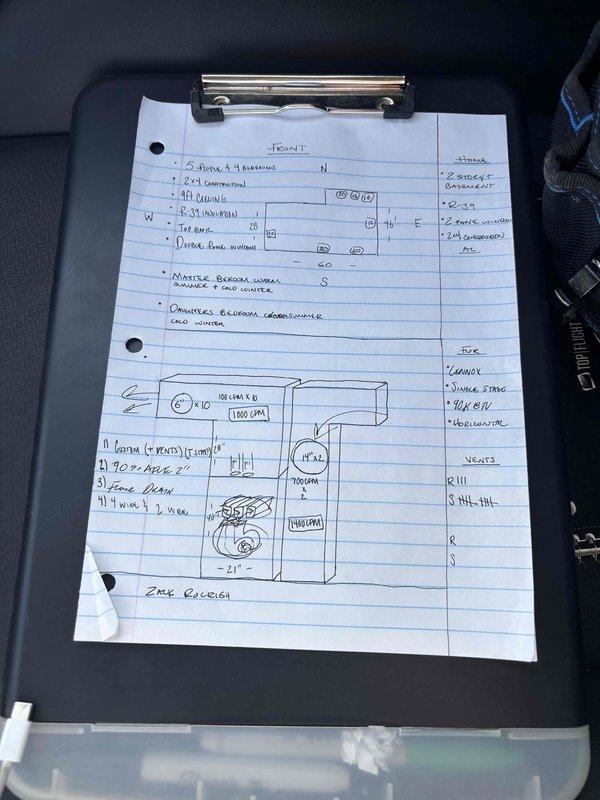 FRONT
• 5 PEOPLE + 4 BEDROOMS
• 2x4 CONSTRUCTION
• 9ft CIELING
• R-39 INSULATION
• DOUBLE PANE WINDOWS
N
W
28'
46'
E
— 60 —
S
• MASTER BEROOM WARM
SUMMER + COLD WINTER
• DAUGHTERS BEDROOM SUMMER
COLD WINTER
HOME
• 2 STORY +
BASEMENT
• R-39
• 2 PANE WINDOW
• 2x4 CONSTRUCTION
AC
FUR
• LENNOX
• SINGLE STAGE
• 90K BTU
• HORIZONTAL
VENTS
R III
S
R
S
6" x 10
100 CFM x 10
1000 CFM
28"
14" x 2
700 CFM
x
2
1400 CFM
40"
- 21" -
1) CUSTOM (+ VENTS) (T STAT)
2) 90% 2"
3) FLOOR DRAIN
4) 4 WIRE & 2 WIRE
ZACK
TOP|FLIGHT